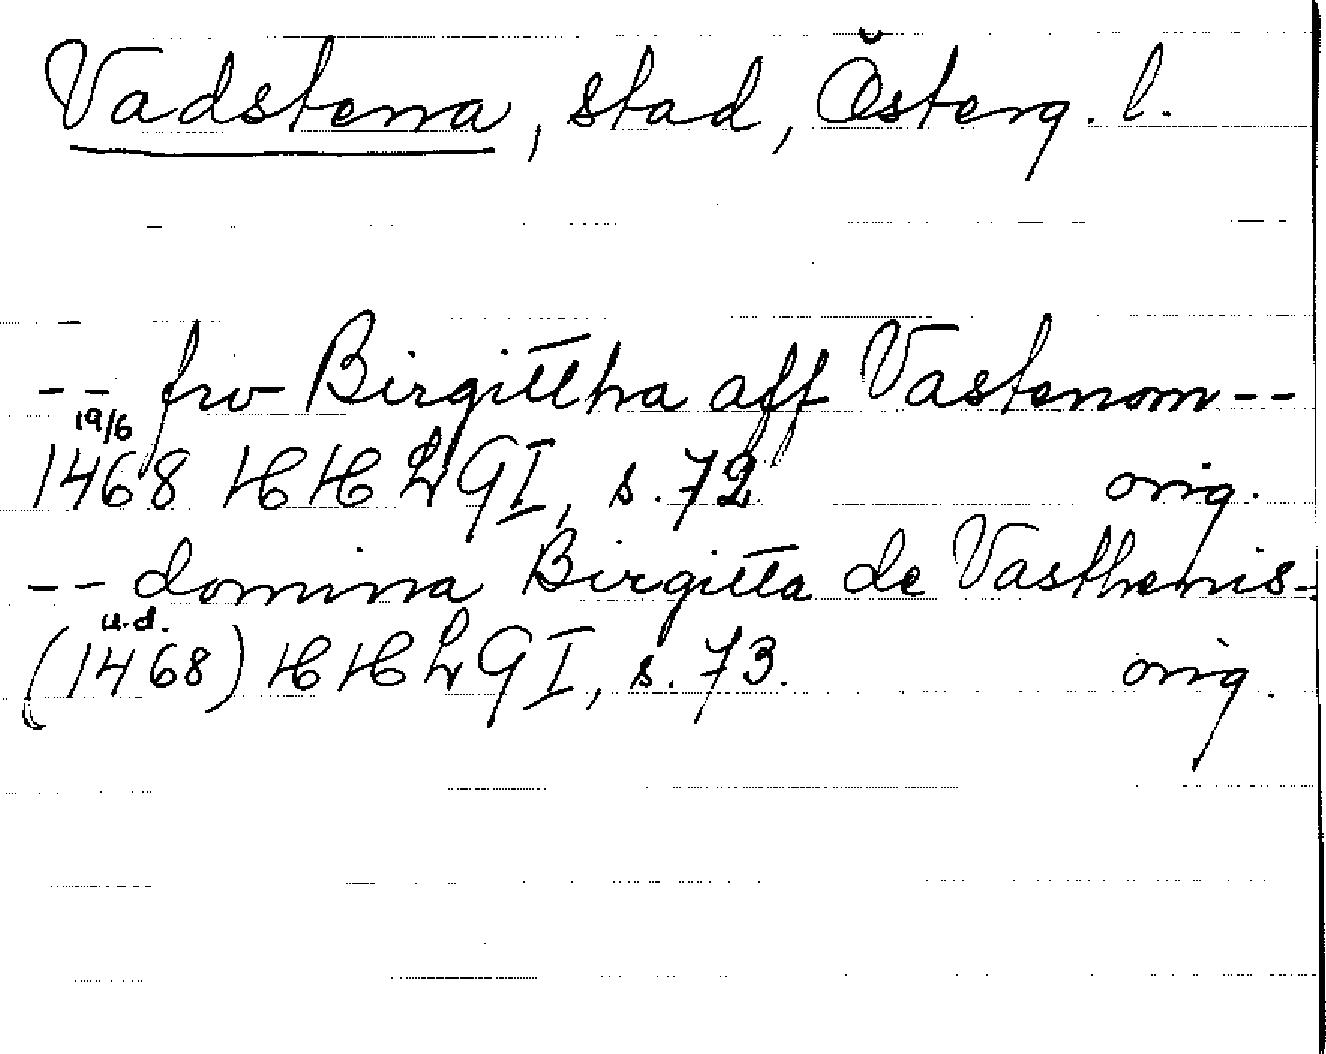 Vadstena, stad, Österg. l.
-- frv Birgittha aff Vastenom --
19/6
1468 HHLG I, s. 72 orig.
-- domina Birgitta de Vasthenis --
u.d.
(1468) HHLG I, s. 73. orig.